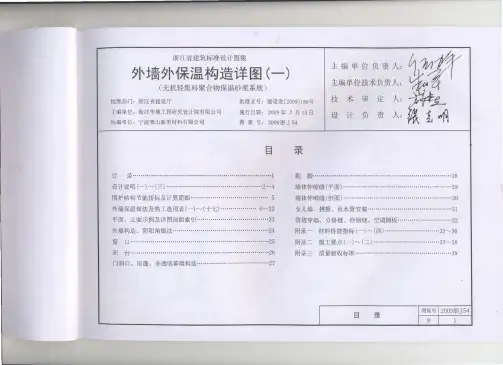 浙江省建筑标准设计图集
外墙外保温构造详图(一)
(无机轻集料聚合物保温砂浆系统)
批准部门：浙江省建设厅
批准文号：建设发[2009]186号
施行日期：2009年7月13日
图集号：2009浙J54
主编单位负责人：
主编单位技术负责人：
技术审定人：
设计负责人：
目 录
目 录 1
设计说明(一)~(三) 2~4
围护结构节能指标及计算范围 5
外墙保温做法及热工选用表(一)~(十七) 6~22
平面、立面示例及详图图例索引 23
外墙构造、阴阳角做法 24
窗 口 25
阳 台 26
门洞口、雨篷、非透明幕墙构造 27
勒 脚 28
墙体伸缩缝(平面) 29
墙体伸缩缝(剖面) 30
女儿墙、挑檐、雨水管安装 31
管道穿墙、分格缝、伸缩缝、空调搁板 32
附录一 材料性能指标(一)~(四) 33~36
附录二 施工要点(一)~(二) 37~38
附录三 质量验收标准 39
目 录
图集号 2009浙J54
页 1